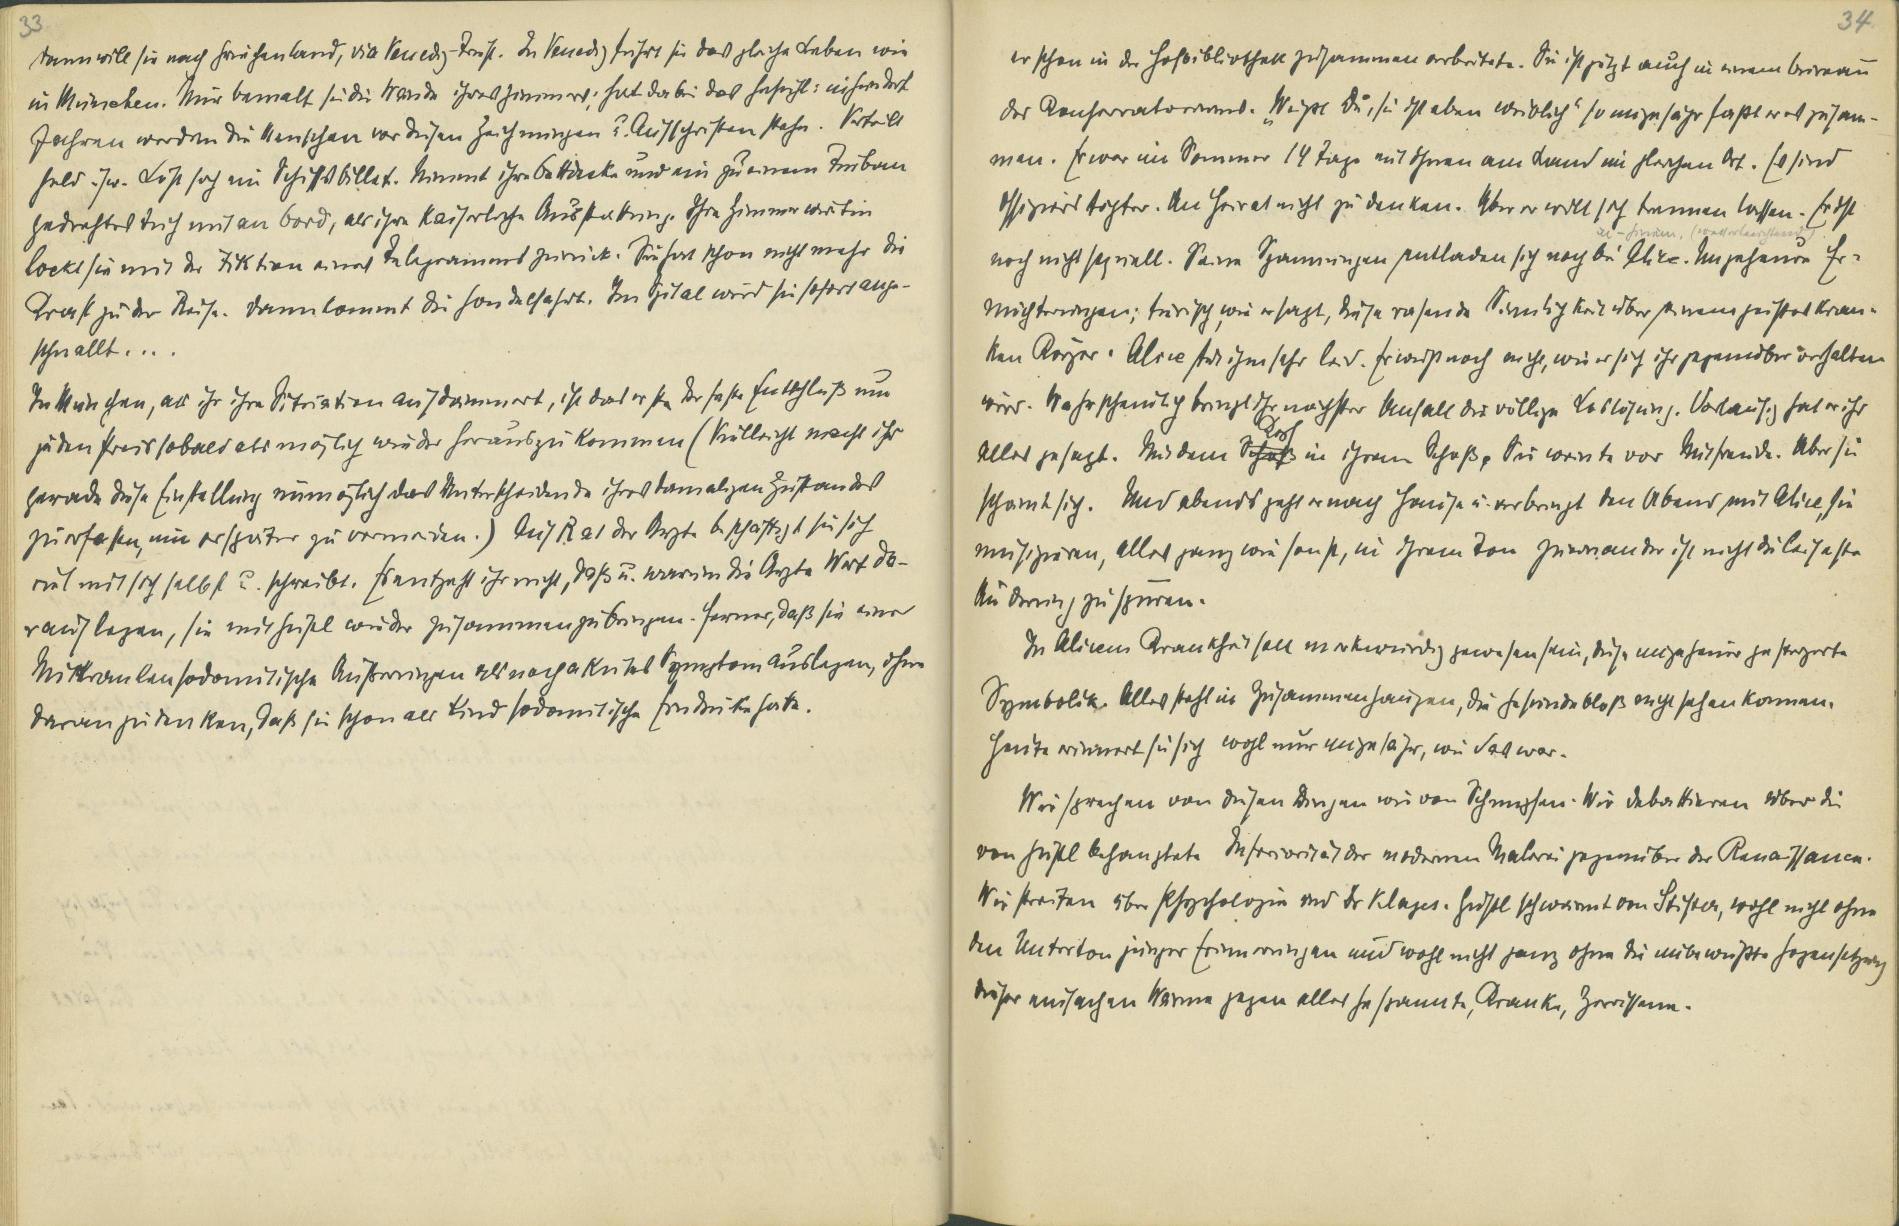 33
dann will sie nach Griechenland, via Venedig-Triest. In Venedig führt sie das gleiche Leben wie
in München. Nur bemalt sie die Wände ihres Zimmers; hat dabei das Gefühl: in hundert
Jahren werden die Menschen vor diesen Zeichnungen u. Aufschriften stehn. Verteilt
Geld usw. Löst sich ein Schiffsbillet. Nimmt ihre Bettdecke und ein zu einem Turban
gedrehtes Tuch mit an Bord, als ihre kaiserliche Ausstattung. Ihre Zimmerwirtin
lockt sie mit der Fiktion eines Telegramms zurück. Sie hat schon nicht mehr die
Kraft zu der Reise. Dann kommt die Gondelfahrt. Im Spital wird sie sofort ange-
schnallt....
In München, als ihr ihre Situation aufdämmert, ist das erste der feste Entschluß um
jeden Preis sobald als möglich wieder herauszukommen (Vielleicht macht ihr
gerade diese Einstellung unmöglich das Unterscheidende ihres damaligen Zustandes
zu erfassen, um es später zu vermeiden.) Auf Rat der Ärzte beschäftigt sie sich
viel mit sich selbst u. schreibt. Es entgeht ihr nicht, daß u. warum die Ärzte Wert da-
rauf legen, sie mit Gustl wieder zusammenzubringen. Ferner, daß sie einer
Mitkranken sodomitische Äußerungen als noch akutes Symptom auslegen, ohne
daran zu denken, daß sie schon als Kind sodomitische Eindrücke hatte.
34
er schon in der Hofbibliothek zusammen arbeitete. Sie ist jetzt auch in einem Bureau
des Konservatoriums. „Weißt Du, sie ist eben weiblich“ so ungefähr faßt er es zusam-
men. Er war im Sommer 14 Tage mit ihnen am Land im gleichen Ort. Es sind
Offizierstöchter. An Heirat nicht zu denken. Aber er will sich trennen lassen. Er ist
noch nicht sexuell. Seine Spannungen entladen sich noch bei Alice. Ungeheure Er-
nüchterungen; tierisch, wie er sagt, diese rasende Sinnlichkeit über einem geisteskran-
ken Körper. Alice tut ihm sehr leid. Er weiß noch nicht, wie er sich ihr gegenüber verhalten
wird. Wahrscheinlich bringt ihr nächster Anfall die völlige Loslösung. Vorläufig hat er ihr
alles gesagt. Mit dem Schoß Kopf in ihrem Schoß. Sie weinte vor Mitfreude. Aber sie
schämt sich. Und abends geht er nach Hause u. verbringt den Abend mit Alice, sie
musizieren, alles ganz wie sonst, in ihrem Ton zueinander ist nicht die leiseste
Änderung zu spüren.
In Alicens Krankheit soll merkwürdig gewesen sein, diese ungeheuer gesteigerte
Symbolik. Alles steht in Zusammenhängen, die Gesunde bloß nicht sehen können.
Heute erinnert sie sich wohl nur ungefähr, wie das war.
Wir sprechen von diesen Dingen wie von Schnupfen. Wir debattieren über die
von Gustl behauptete Inferiorität der modernen Malerei gegenüber der Renaissance.
Wir streiten über Psychologie und Dr Klages. Gustl schwärmt von Stifter, wohl nicht ohne
den Unterton junger Erinnerungen und wohl nicht ganz ohne die unbewußte Gegensetzung
dieser einfachen Wärme gegen alles Gespannte, Kranke, Zerrissene.